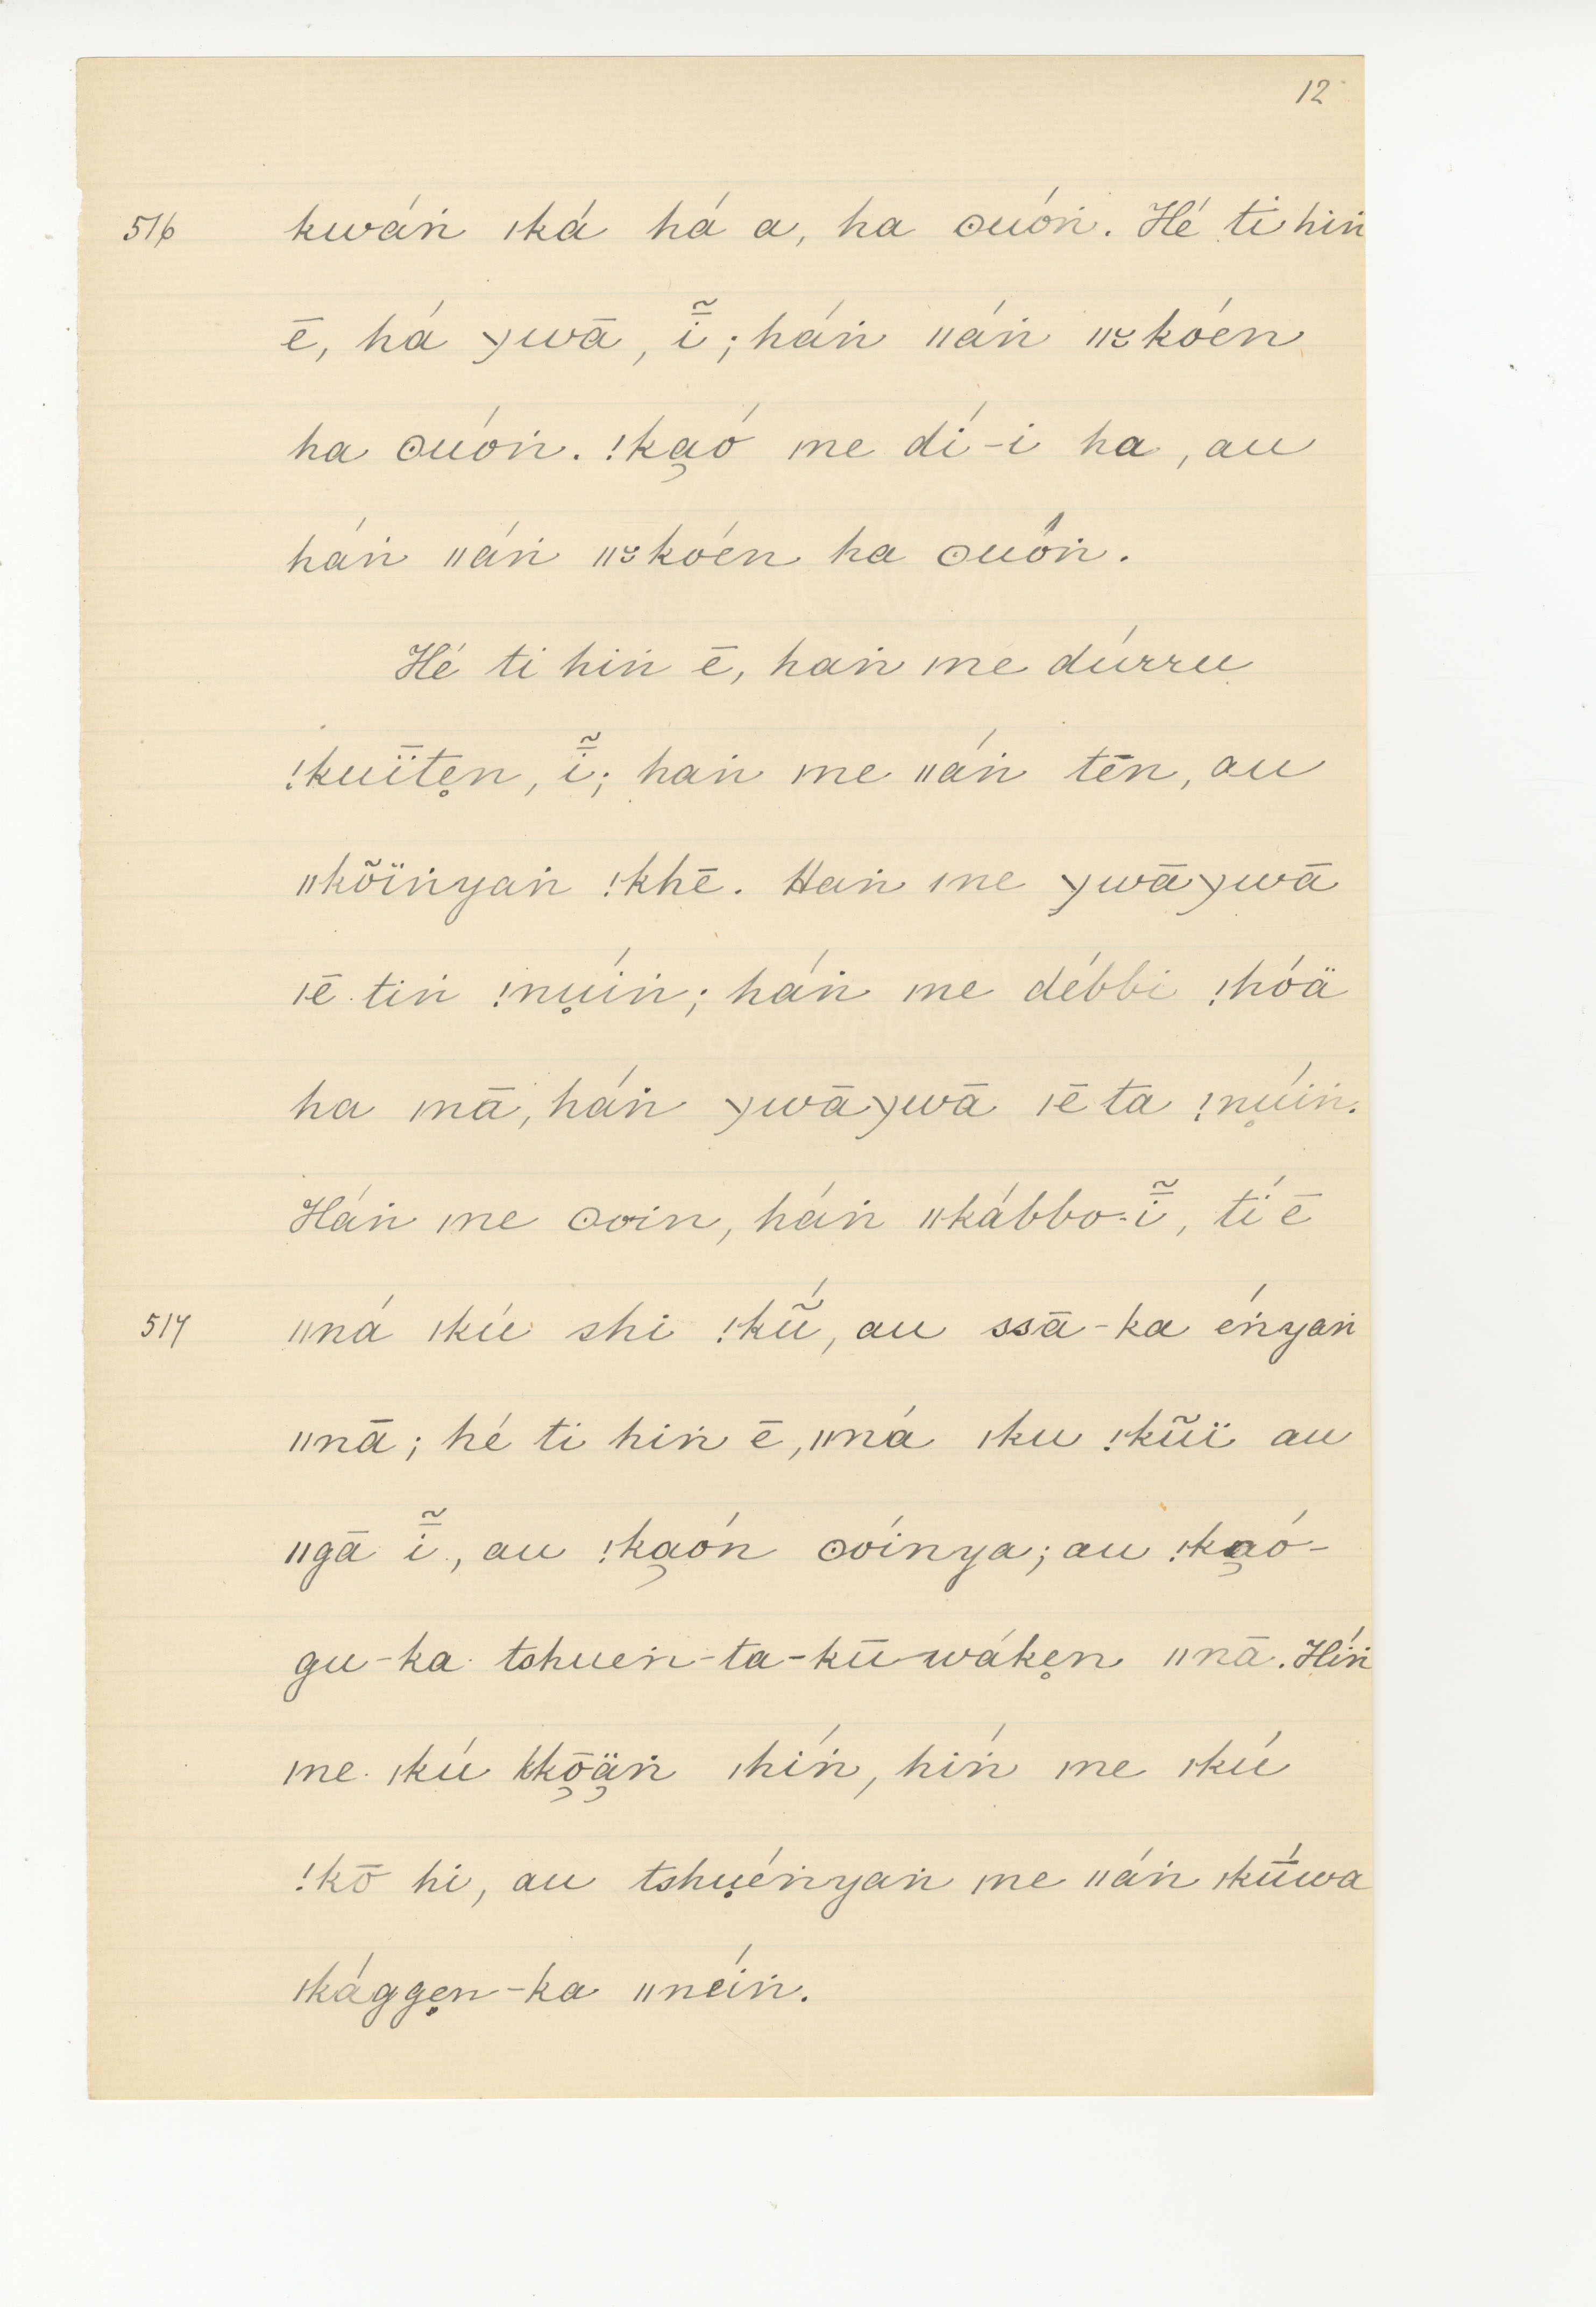 12
516 kwáṅ ǀká há a, ha ʘuóṅ. Hé ti hiṅ
ē, há ɣwā, ī̃; háṅ ǁáṅ ǁꭓkóen
ha ʘuóṅ. ǃka̡ó ǀne dí-i ha, au
háṅ ǁáṅ ǁꭓkóen ha ʘuóṅ.
Hé ti hiṅ ē, haṅ ǀne dúrru
ǃkuī̈te̥n, ī̃; haṅ ǀne ǁáṅ tēn, au
ǁkõïṅyaṅ ǃkhē. Haṅ ǀne ɣwāɣwā
ǀē tiṅ ǃnu̥íṅ; háṅ ǀne débbi ǃhóä
ha ǀnā, háṅ ɣwāɣwā ǀē ta ǃnu̥íṅ.
Háṅ ǀne ʘoin, háṅ ǁkábbo-ī̃, tí ē
517 ǁná ǀkú shi ǃkṹ, au ssā-ka éṅyaṅ
ǁnā; hé ti hiṅ ē, ǁná ǀku ǃkũï au
ǁgā ī̃, au ǃka̡ón ʘóinya; au ǃka̡ó-
gu-ka tshueṅ-ta-kū-wáke̥n ǁnā. Híṅ
ǀne ǀkú kkō̡ä̡ṅ ǀhíṅ, híṅ ǀne ǀkú
ǃkō hi, au tshu̥éṅyaṅ ǀne ǁáṅ ǀkū́wa
ǀkágge̥n-ka ǁnéiṅ.